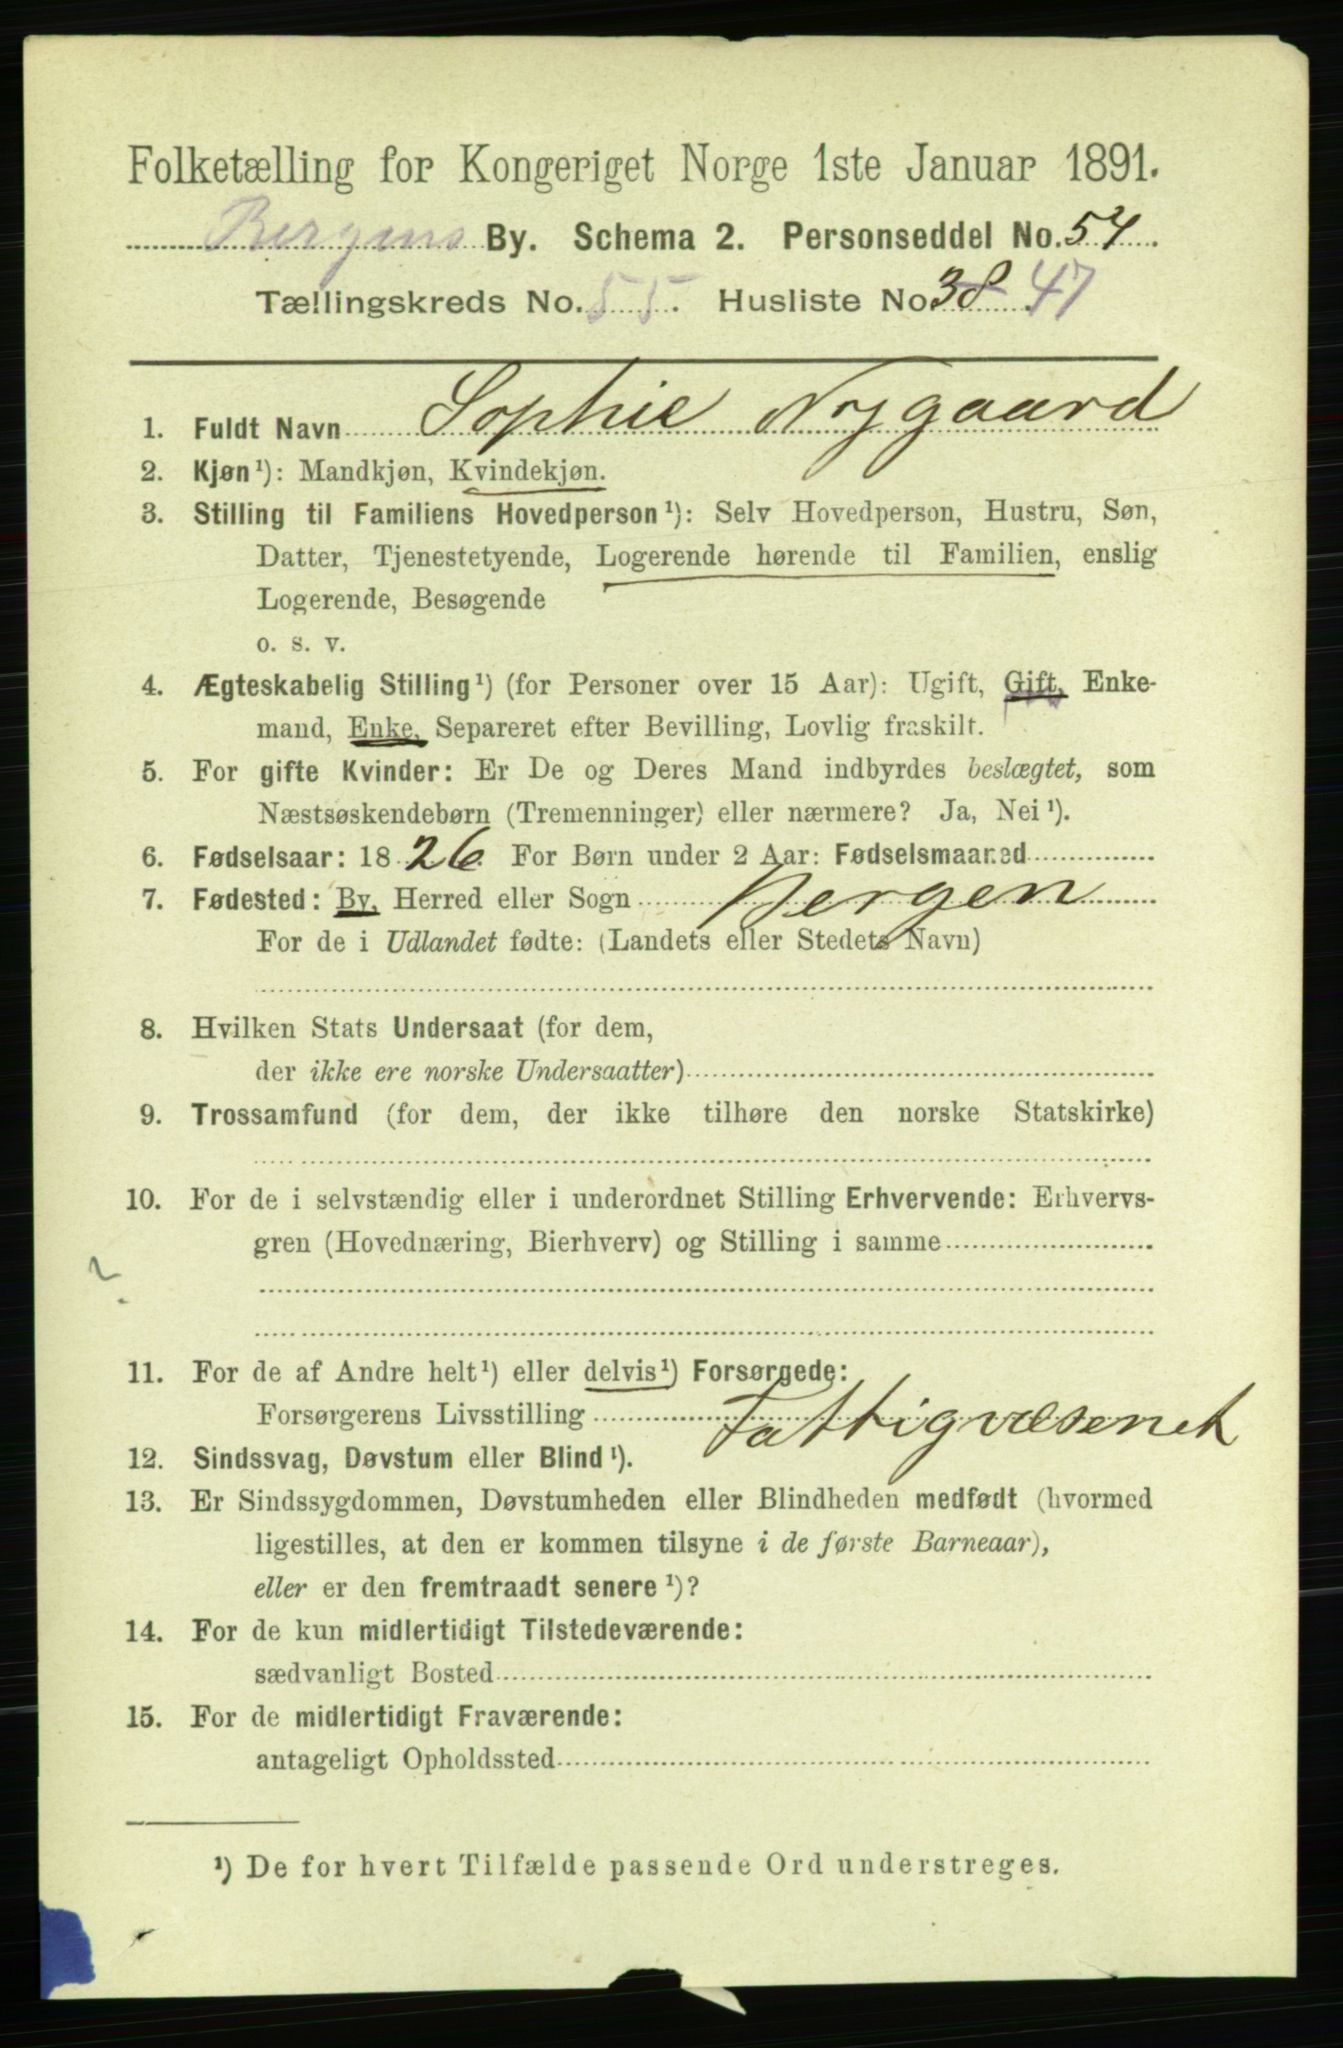 Folketælling for Kongeriget Norge 1ste Januar 1891.
Bergens By. Schema 2. Personseddel No. 54
Tællingskreds No. 55. Husliste No 38 47
1. Fuldt Navn Sophie Nygaard
2. Kjøn¹): Mandkjøn, Kvindekjøn.
3. Stilling til Familiens Hovedperson¹): Selv Hovedperson, Hustru, Søn,
Datter, Tjenestetyende, Logerende hørende til Familien, enslig
Logerende, Besøgende
o. s. v.
4. Ægteskabelig Stilling¹) (for Personer over 15 Aar): Ugift, Gift, Enke-
mand, Enke, Separeret efter Bevilling, Lovlig fraskilt.
5. For gifte Kvinder: Er De og Deres Mand indbyrdes beslægtet, som
Næstsøskendebørn (Tremenninger) eller nærmere? Ja, Nei¹).
6. Fødselsaar: 1826. For Børn under 2 Aar: Fødselsmaaned
7. Fødested: By, Herred eller Sogn Bergen
For de i Udlandet fødte: (Landets eller Stedets Navn)
8. Hvilken Stats Undersaat (for dem,
der ikke ere norske Undersaatter)
9. Trossamfund (for dem, der ikke tilhøre den norske Statskirke)
10. For de i selvstændig eller i underordnet Stilling Erhvervende: Erhvervs-
gren (Hovednæring, Bierhverv) og Stilling i samme
?
11. For de af Andre helt¹) eller delvis¹) Forsørgede:
Forsørgerens Livsstilling Fattigvæsenet
12. Sindssvag, Døvstum eller Blind¹).
13. Er Sindssygdommen, Døvstumheden eller Blindheden medfødt (hvormed
ligestilles, at den er kommen tilsyne i de første Barneaar),
eller er den fremtraadt senere¹)?
14. For de kun midlertidigt Tilstedeværende:
sædvanligt Bosted
15. For de midlertidigt Fraværende:
antageligt Opholdssted
¹) De for hvert Tilfælde passende Ord understreges.